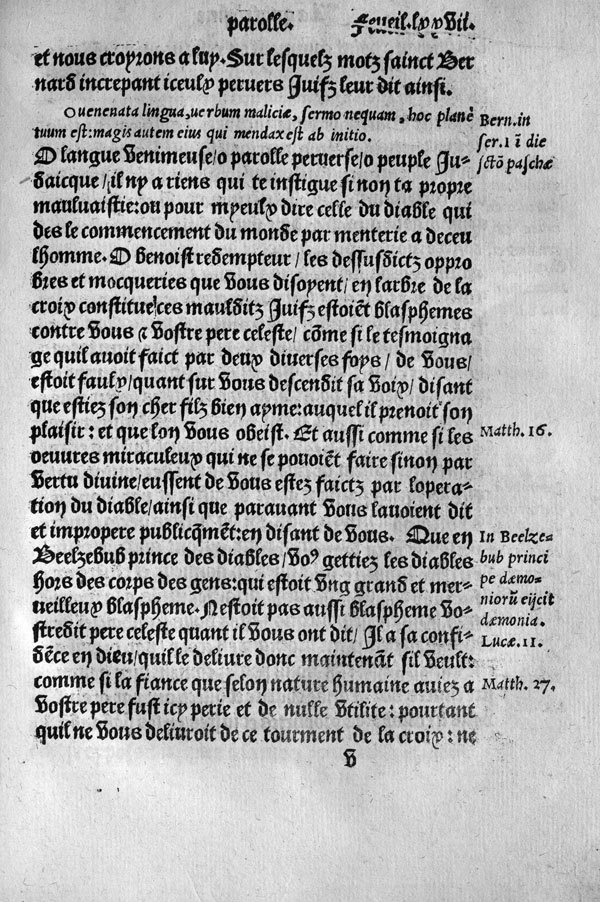 parolle. Feueil. lxxvii.
et nous croyrons a luy. Sur lesquelz motz sainct Ber
nard increpant iceulx pervers Juifz leur dit ainsi.
O uenenata lingua, uerbum maliciæ, sermo nequam, hoc planè
tuum est: magis autem eius qui mendax est ab initio.
Bern. in
ser. 1 ī die
scto pasche
O langue venimeuse/o parolle perverse/o peuple Ju-
daicque/il ny a riens qui te instigue si non ta propre
mauluaistie: ou pour myeulx dire celle du diable qui
des le commencement du monde par menterie a deceu
lhomme. O benoist redempteur/les dessusdictz oppro
bres et mocqueries que vous disoyent/en larbre de la
croix constitue/ces maulditz Juifz estoiēt blasphemes
contre vous ⁊ vostre pere celeste/cōme si le tesmoigna
ge quil avoit faict par deux diverses foys/de vous/
estoit faulx/quant sur vous descendit sa voix/disant
que estiez son cher filz bien ayme: auquel il prenoit son
plaisir: et que lon vous obeist. Et aussi comme si les
Matth. 16.
oeuvres miraculeux qui ne se povoiēt faire sinon par
vertu divine/eussent de vous estez faictz par lopera-
tion du diable/ainsi que paravant vous lavoient dit
et impropere publicqmēt: en disant de vous. Que en
Beelzebub prince des diables/voꝰ gettiez les diables
hors des corps des gens: qui estoit vng grand et mer-
veilleux blaspheme. Nestoit pas aussi blaspheme vo-
In Beelze-
bub princi
pe dæmo-
niorū eijcit
dæmonia.
Lucæ. 11.
stredit pere celeste quant il vous ont dit/Il a sa confi-
dēce en dieu/quil le delivre donc maintenāt sil veult:
comme si la fiance que selon nature humaine aviez a
Matth. 27.
vostre pere fust icy perie et de nulle vtilite: pourtant
quil ne vous delivroit de ce tourment de la croix: ne
v